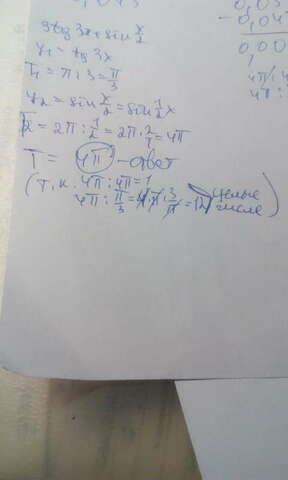 3tg3x+sin x/2
y₁ = tg 3x
T₁ = π:3 = π/3
y₂ = sin x/2 = sin 1/2 x
T₂ = 2π : 1/2 = 2π · 2/1 = 4π
T = 4π - ответ
(т.к. 4π : 4π = 1
4π : π/3 = 4π · 3/π = 12 целые числа)
0,03
- 0,04
0,00
4π
4π :